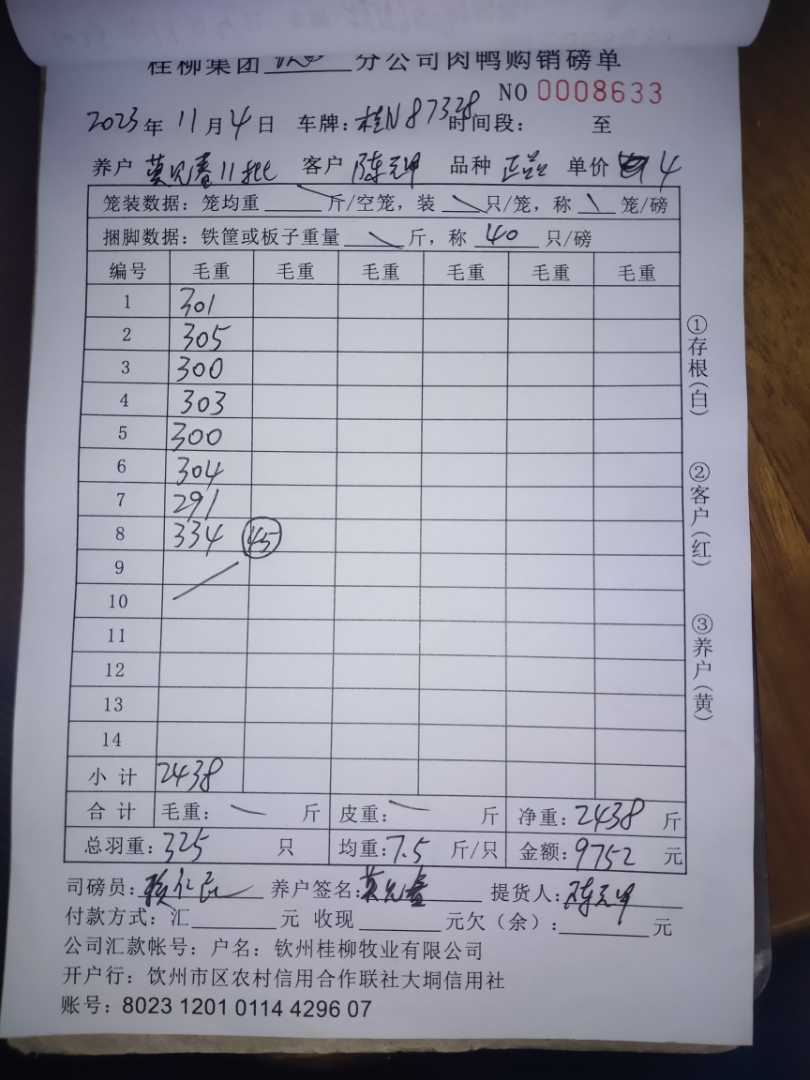 桂柳集团 分公司肉鸭购销磅单
NO 0008633
2023年 11月 4日 车牌:桂N87328 时间段: 至
养户 莫见春11批 客户 陈 品种 正品 单价 4
笼装数据:笼均重 斤/空笼,装 只/笼,称 笼/磅
捆脚数据:铁筐或板子重量 斤,称 40 只/磅
编号 毛重 毛重 毛重 毛重 毛重 毛重
1 301
2 305
3 300
4 303
5 300
6 304
7 291
8 334 45
9
10
11
12
13
14
小 计 2438
合 计 毛重: 斤 皮重: 斤 净重:2438 斤
总羽重:325 只 均重:7.5 斤/只 金额:9752 元
司磅员: 养户签名: 提货人:陈
付款方式:汇 元 收现 元欠(余): 元
公司汇款帐号:户名:钦州桂柳牧业有限公司
开户行:饮州市区农村信用合作联社大垌信用社
账号:8023 1201 0114 4296 07
①存根(白)
②客户(红)
③养户(黄)